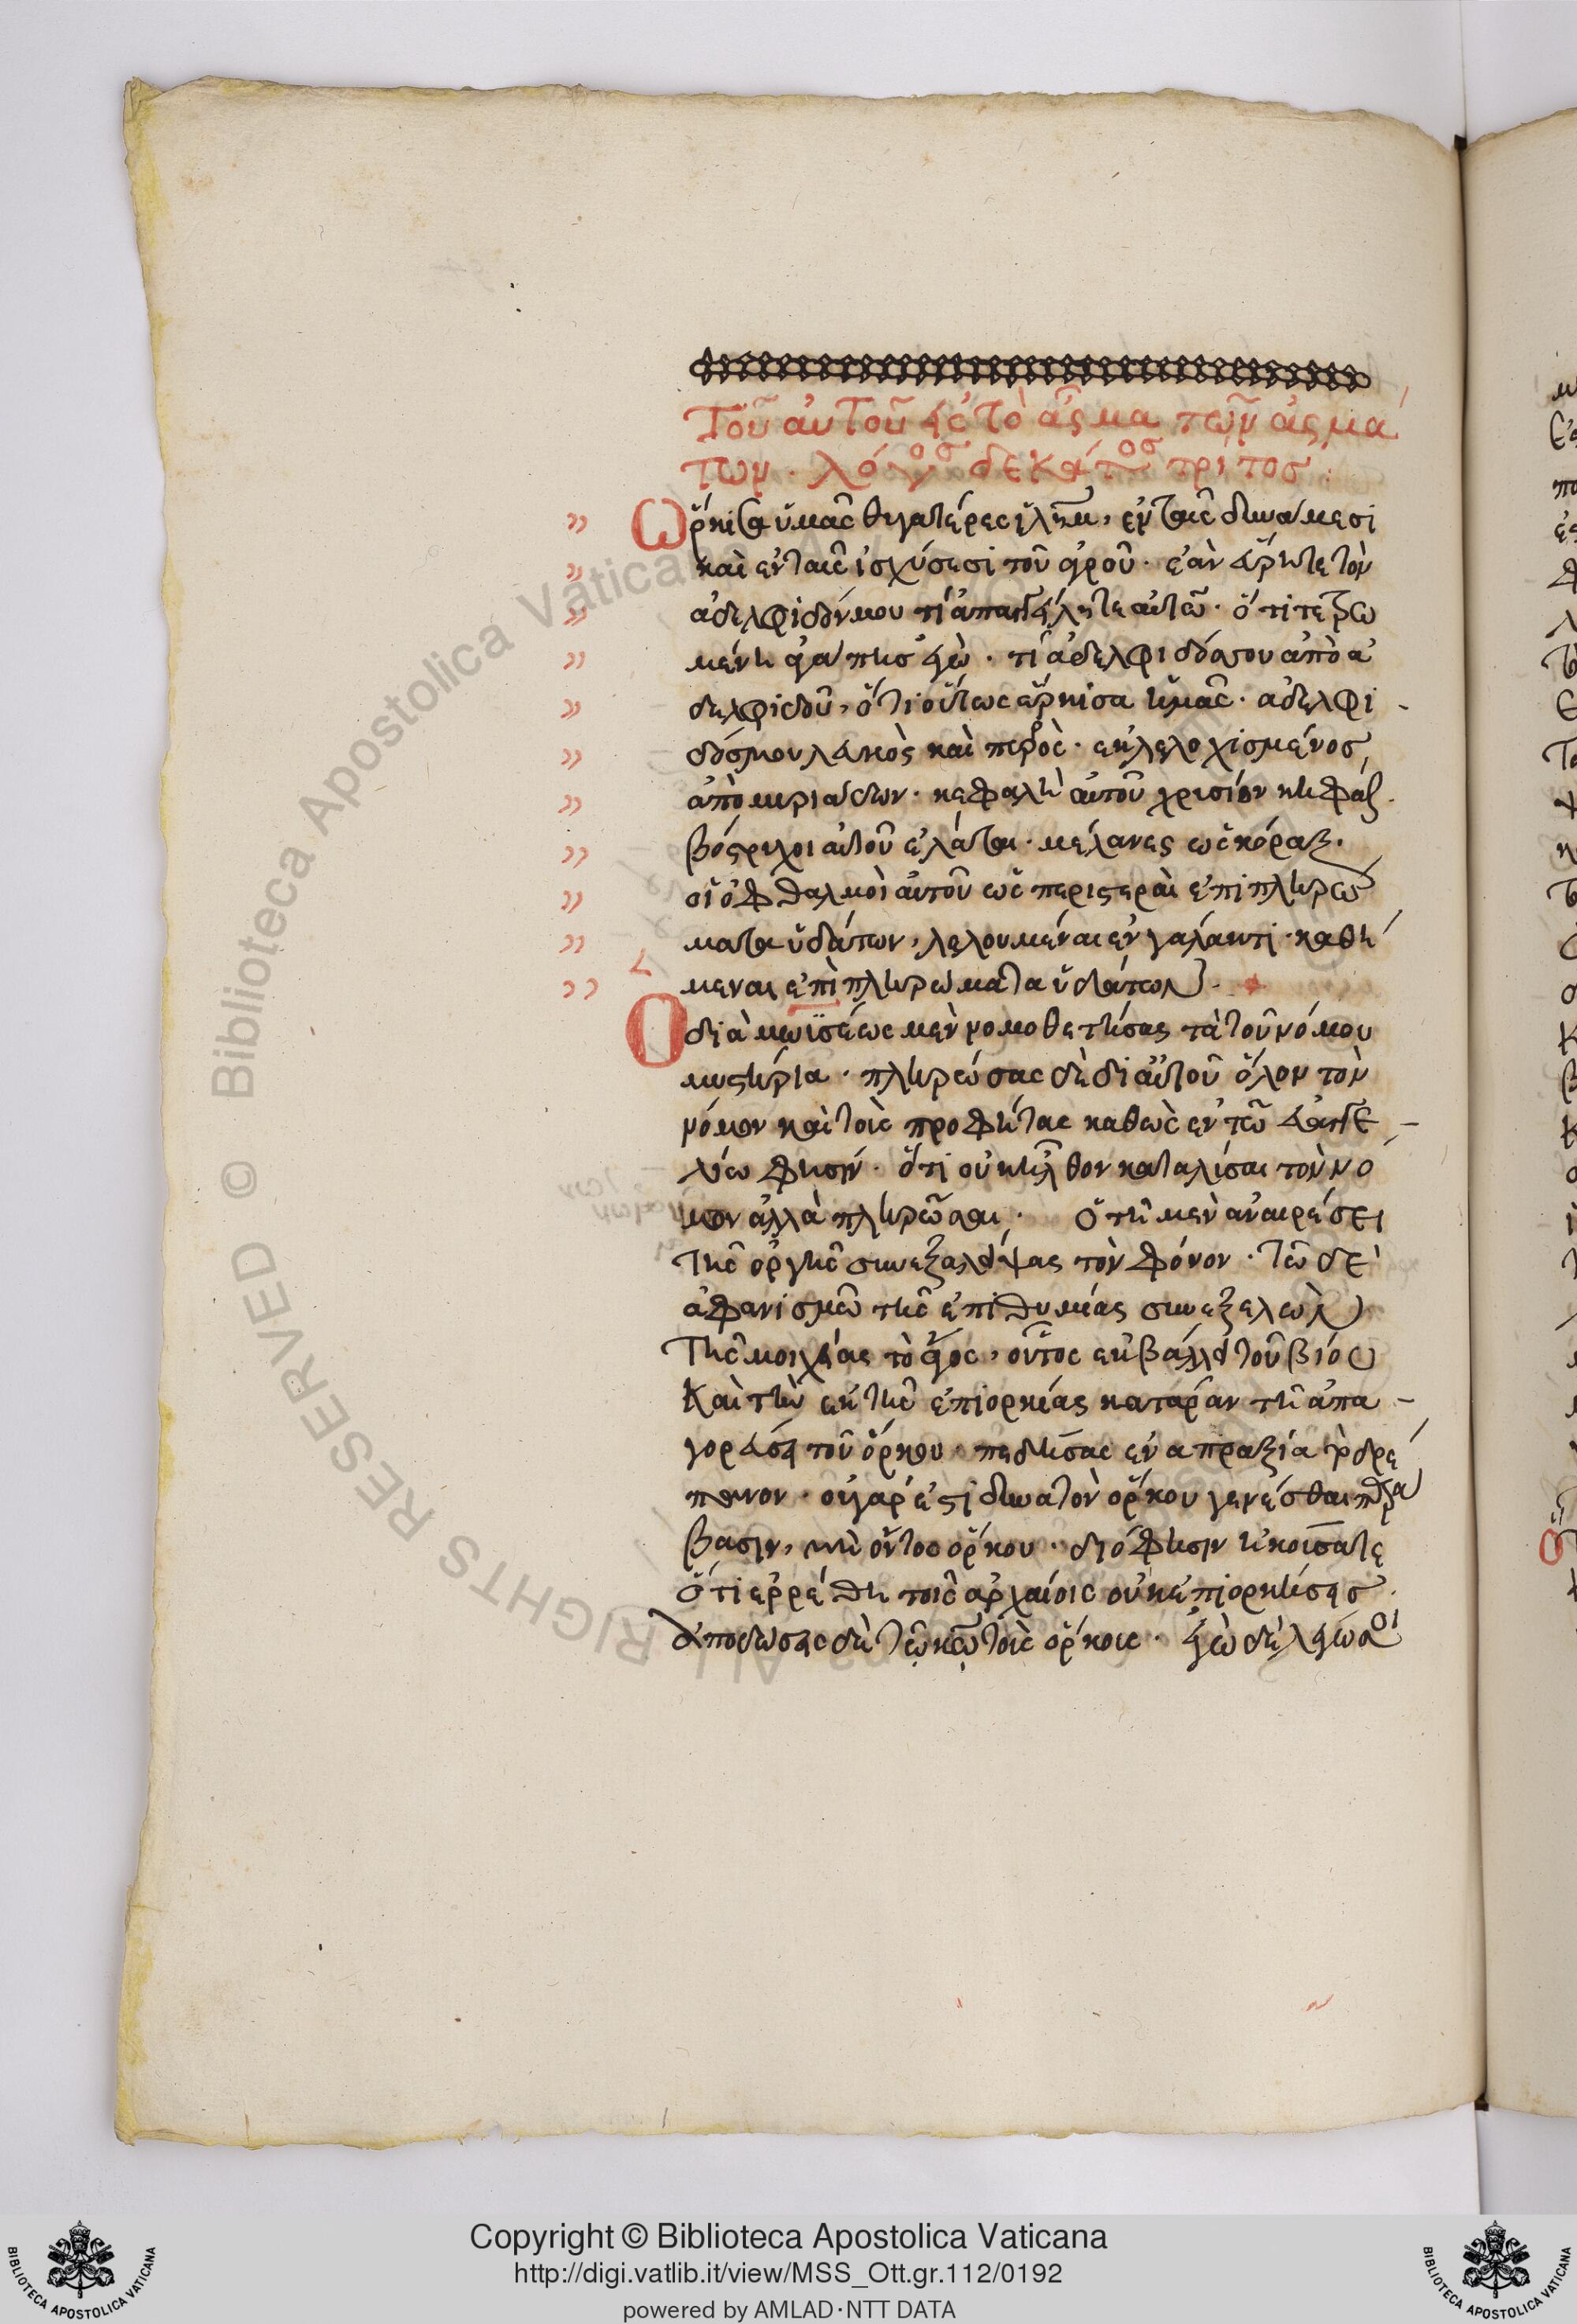 Τοῦ αὐτοῦ εἰς τὸ ἆσμα τῶν ἀσμά
των. λόγος δεκάτος τρίτος:
Ὥρκισα ὑμᾶς θυγατέρες ἱλῆμ, ἐν ταῖς δυνάμεσι
καὶ ἐν ταῖς ἰσχύσεσι τοῦ ἀγροῦ. ἐὰν εὕρητε τὸν
ἀδελφιδόν μου τί ἀπαγγείλητε αὐτῶ. ὅτι τετρω
μένη ἀγάπης ἐγὼ. τί ἀδελφιδός σου ἀπὸ ἀ
δελφιδοῦ, ὅτι οὕτως ὥρκισα ἡμᾶς. ἀδελφι
δός μου λευκὸς καὶ πυρὸς. ἐκλελοχισμένος
ἀπὸ μυριάδων. κεφαλὴ αὐτοῦ χρυσίον κεφάζ.
βόστρυχοι αὐτοῦ ἐλάται. μέλανες ὡς κόραξ.
οἱ ὀφθαλμοὶ αὐτοῦ ὡς περιστεραὶ ἐπι πληρώ
ματα ὑδάτων, λελουμέναι ἐν γάλακτι. καθή
μεναι ἐπὶ πληρώματα ὑδάτων.
Ὁ διὰ μωϋσέως μὲν νομοθετήσας τὰ τοῦ νόμου
μυστήρια. πληρώσας δὲ δι αὐτοῦ ὅλον τὸν
νόμον καὶ τοὺς προφήτας καθὼς ἐν τῶ εὐαγγε
λίω φησὶν. ὅτι οὐκ ἦλθον καταλύσαι τὸν νό
μον ἀλλὰ πληρῶσαι. Ὁ τῆ μὲν ἀναιρέσει
τῆς ὀργῆς συνεξαλείψας τὸν φόνον. τῶ δὲ
ἀφανισμῶ τῆς ἐπιθυμίας συνεξελὼν
τῆς μοιχείας τὸ ἄγος, οὗτος ἐκβάλλει τοῦ βίου
καὶ τὴν ἐκ τῆς ἐπιορκίας κατάραν τῆ ἀπα
γορεύσει τοῦ ὅρκου. πεδήσας ἐν ἀπραξία τὸ δρέ
πανον. οὐ γάρ ἐστι δυνατὸν ὅρκου γενέσθαι παρά
βασιν, μὴ ὄντος ὅρκου. διό φησιν ἠκούσατε
ὅτι ἐρρέθη τοῖς ἀρχαίοις οὐκ ἐπιορκήσεις.
ἀποδώσεις δὲ τῶ κῶ τοὺς ὅρκους. ἐγὼ δὲ λέγω
Copyright © Biblioteca Apostolica Vaticana
http://digi.vatlib.it/view/MSS_Ott.gr.112/0192
powered by AMLAD·NTT DATA